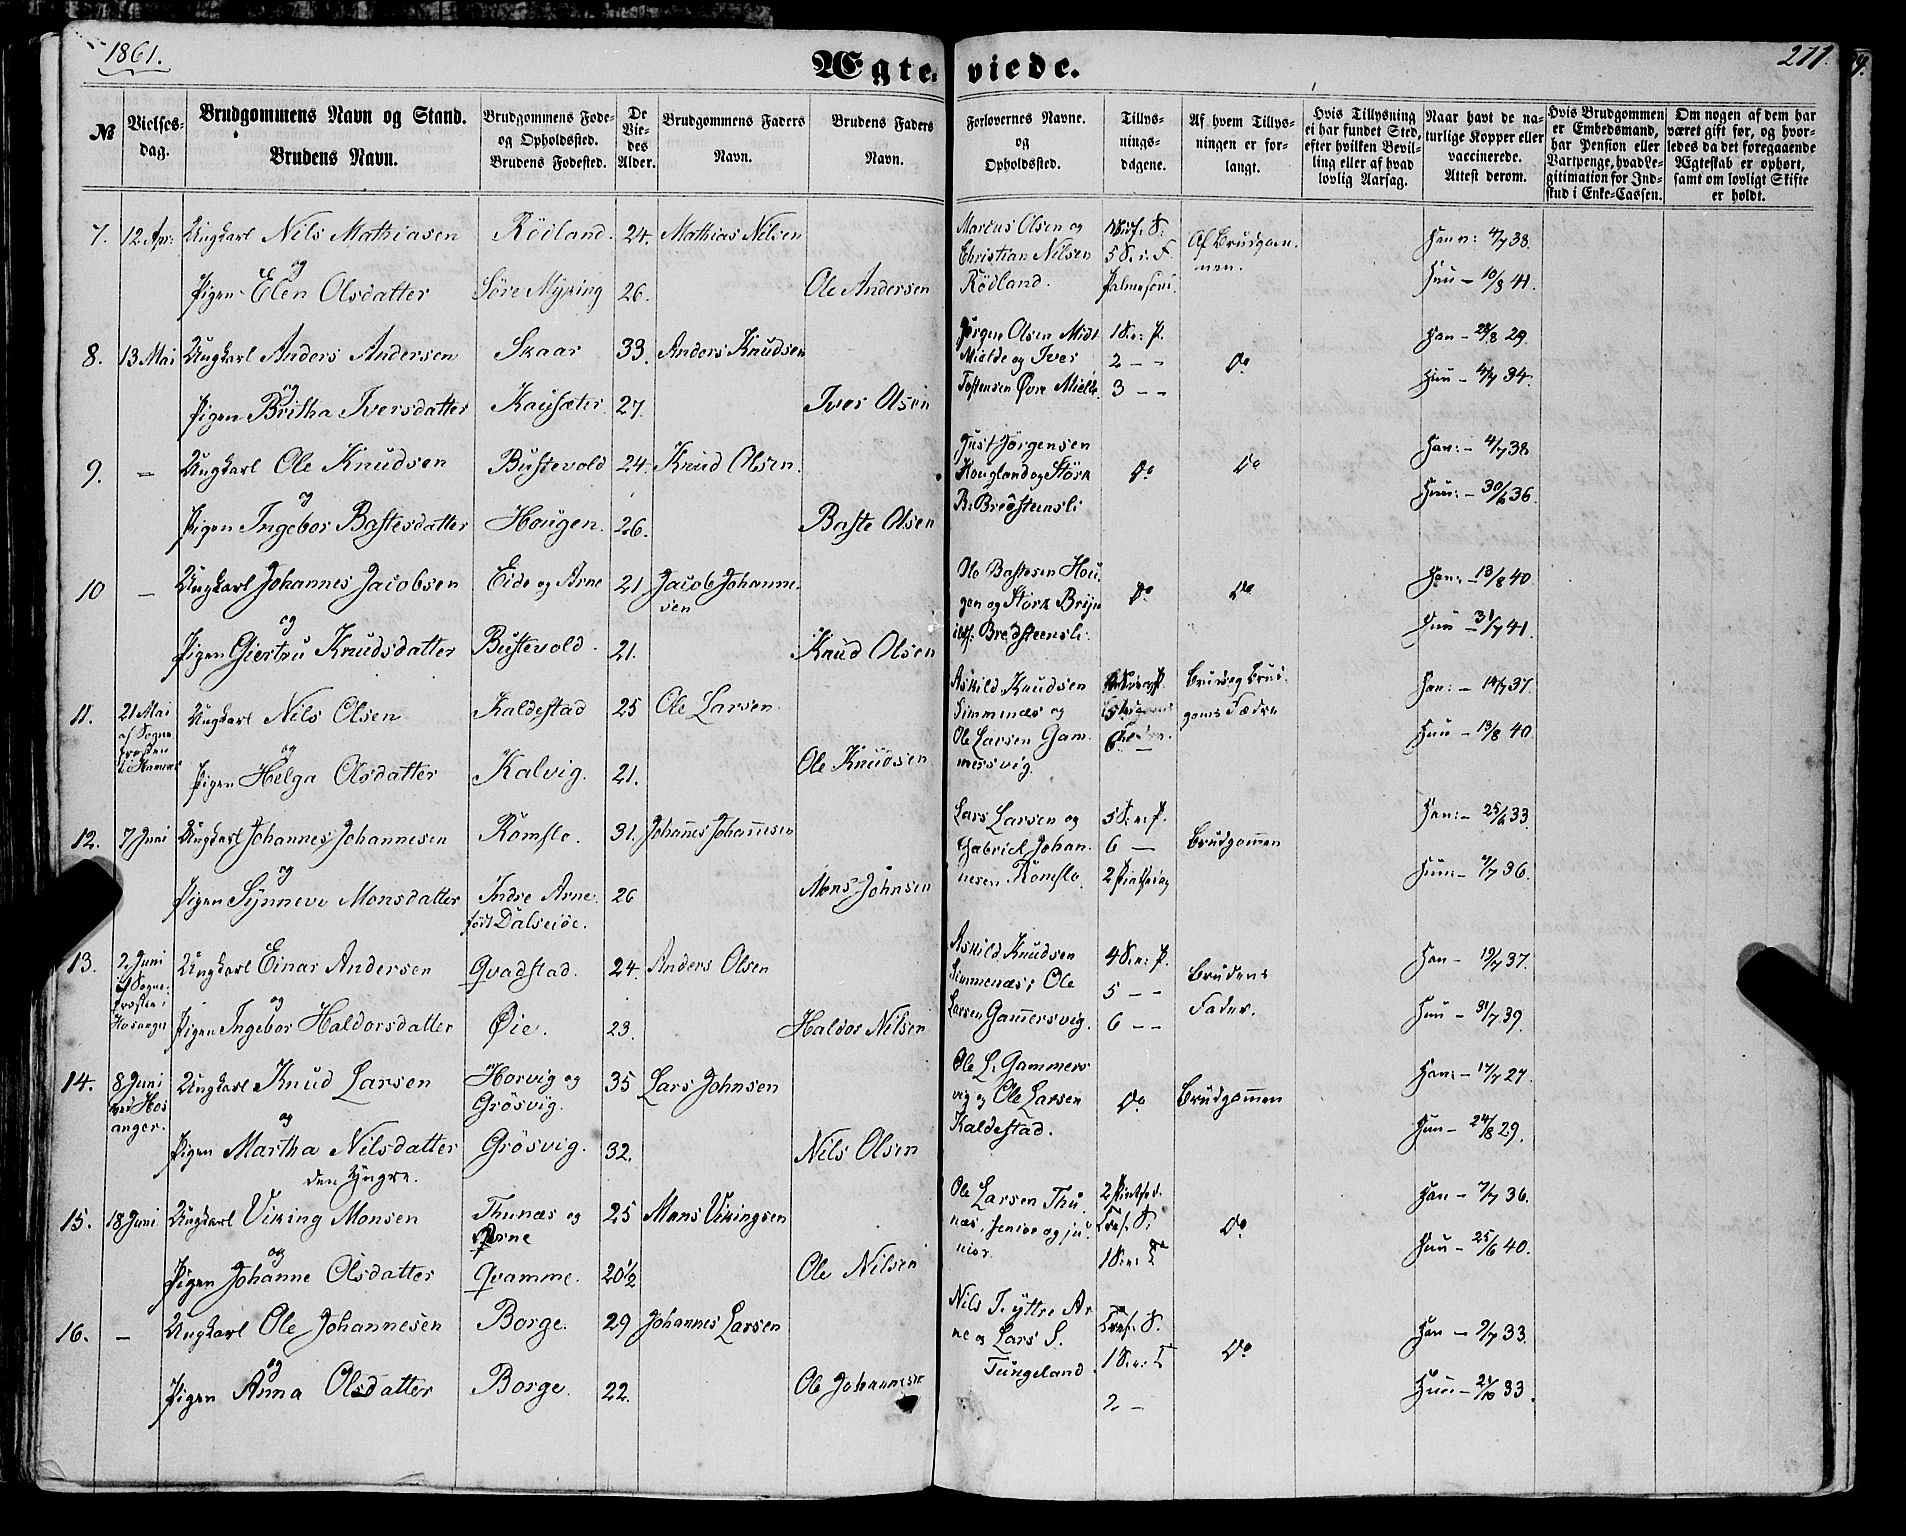 1861.
Ægte viede.
277.
№
Vielses-dag.
Brudgommens Navn og Stand.
Brudens Navn.
Brudgommens Føde- og Opholdssted.
Brudens Fødested.
De Vie-des Alder.
Brudgommens Faders Navn.
Brudens Faders Navn.
Forlovernes Navne. og Opholdssted.
Tillys-nings-dagene.
Af hvem Tillys-ningen er for-langt.
Hvis Tillysning ei har fundet Sted, efter hvilken Bevil-ling eller af hvad lovlig Aarsag.
Naar havt de na-turlige Kopper eller vaccinerede. Attest derom.
Hvis Brudgommen er Embedsmand, har Pension eller Vartpenge, hvad Le-gitimation for Ind-skud i Enke-Cassen.
Om nogen af dem har været gift før, og hvor-ledes da det foregaaende Ægteskab er ophørt, samt om lovligt Skifte er holdt.
7. 12 Apr: Ungkarl Nils Mathiasen Rödland. 24. Mathias Nilsen
Marcus Olsen og
Christian Nilsen 5 S. i. F. Af Brudgom-
men.
Rödland. Palmesönd.
Han v: 4/7 38.
og
Pigen Elen Olsdatter Söre Myking 26. Ole Andersen
Hun — 10/8 41.
8. 13 Mai Ungkarl Anders Andersen Skaar 33. Anders Knudsen
Jörgen Olsen Midt 1 S. e: P.
Mielde og Iver 2 — — do
Tostensen Övre Mielde 3 — —
Han — 28/8 29.
og
Pigen Britha Iversdatter Kausæter 27. Iver Olsen
Hun — 4/7 34.
9. — Ungkarl Ole Knudsen Bustevold 24. Knud Olsen.
Just Jörgensen
Hougland og Störk do do
B. Bredsteensli
Han: — 4/7 38
og
Pigen Ingebor Bastesdatter Hougen. 26. Baste Olsen
Hun: — 30/6 36.
10 — Ungkarl Johannes Jacobsen Eide og Arne 21 Jacob Johanne-
sen
Ole Bastesen Hou-
gen og Störk Brijn do do
ilds. Bredsteensli.
Han: — 13/8 40
og
Pigen Giertru Knudsdatter Bustevold. 21. Knud Olsen
Hun — 31/7 41.
11. 21 Mai Ungkarl Nils Olsen Kaldestad 25 Ole Larsen
af Sogne
præsten
i Hammer
Askild Knudsen
Simmenæs og
Ole Larsen Gam-
mersvig.
Brud og Brud-
goms Fædre
Han: — 14/7 37.
og
Pigen Helga Olsdatter Kalvig. 21. Ole Knudsen
Hun — 13/8 40.
12. 7 Juni Ungkarl Johannes Johannesen Romslo. 31. Johannes Johannesen
Lars Larsen og 5 S. e: P.
Gabriel Johan- 6 — Brudgommen
nesen Romslo. 2 Pintsedag
Han: — 25/6 33.
og
Pigen Synneve Monsdatter Indre Arne. 26 Mons Johnsen
född Dalseide.
Hun: — 7/7 36.
13. 2 Juni Ungkarl Einar Andersen Qvadstad. 24. Anders Olsen
af Sogne-
præsten i
Hosanger
Askild Knudsen 4 S. e: P.
Simmenæs; Ole 5 — — Brudens
Larsen Gammersvig. 6 — — Fader.
Han — 19/7 37.
og
Pigen Ingebor Haldorsdatter Öie. 23. Haldor Nilsen
Hun — 31/7 39.
14. 8 Juni Ungkarl Knud Larsen Horvig og 35 Lars Johnsen
ved Hos-
anger. Grösvig.
Ole L. Gammers-
vig og Ole Larsen do Brudgommen
Kaldestad.
Han: — 17/7 27.
og
Pigen Martha Nilsdatter Grösvig. 32. Nils Olsen
den Yngre.
Hun — 24/8 29.
15. 18 Juni Ungkarl Viking Monsen Thunæs og 25 Mons Vikingsen
Arne
Ole Larsen Thu- 2 Pintsed.
næs, senior og ju- Tref. S. do
nior. 1 S. e: T
Han — 7/7 36.
og
Pigen Johanne Olsdatter Qvamme. 20½ Ole Nilsen
Hun — 25/6 40.
16. — Ungkarl Ole Johannesen Borge. 29 Johannes Larsen
Nils I. yttre Ar- Tref. S.
ne og Lars S. 1 S. e: T do
Tungeland. 2 —
Han — 2/7 33.
og
Pigen Anna Olsdatter Borge. 22. Ole Johannesen
Hun — 21/10 33.